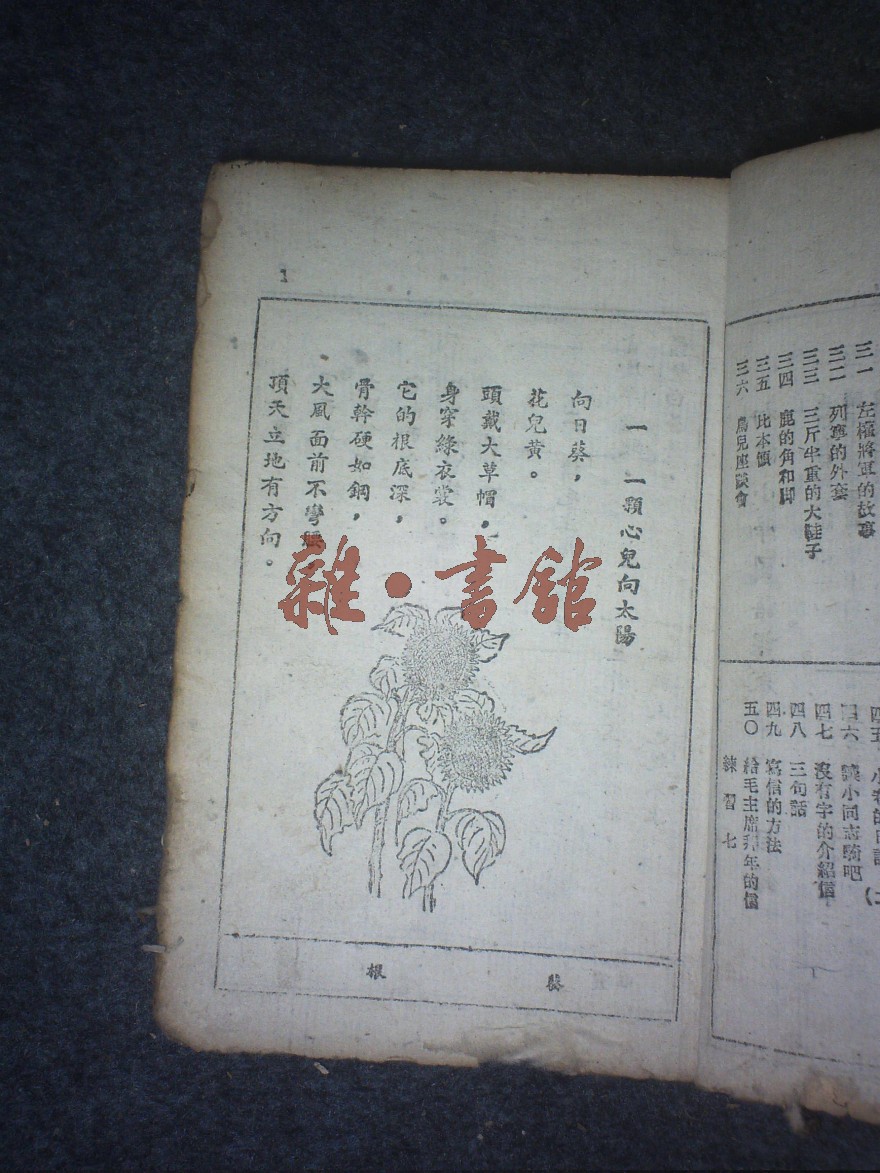 三一 左權將軍的故事
三二 列寧的外套
三三 三斤半重的大鞋子
三四 鹿的角和脚
三五 比本領
三六 鳥兒座談會
四五
四六 讓小同志騎吧
四七 沒有字的介紹信
四八 三句話
四九 寫信的方法
五〇 給毛主席拜年的信
練習七
1
一 一顆心兒向太陽
向日葵，
花兒黃。
頭戴大草帽，
身穿綠衣裳。
它的根底深，
骨幹硬如鋼，
大風面前不彎腰，
頂天立地有方向。
葵
根
雜·書館